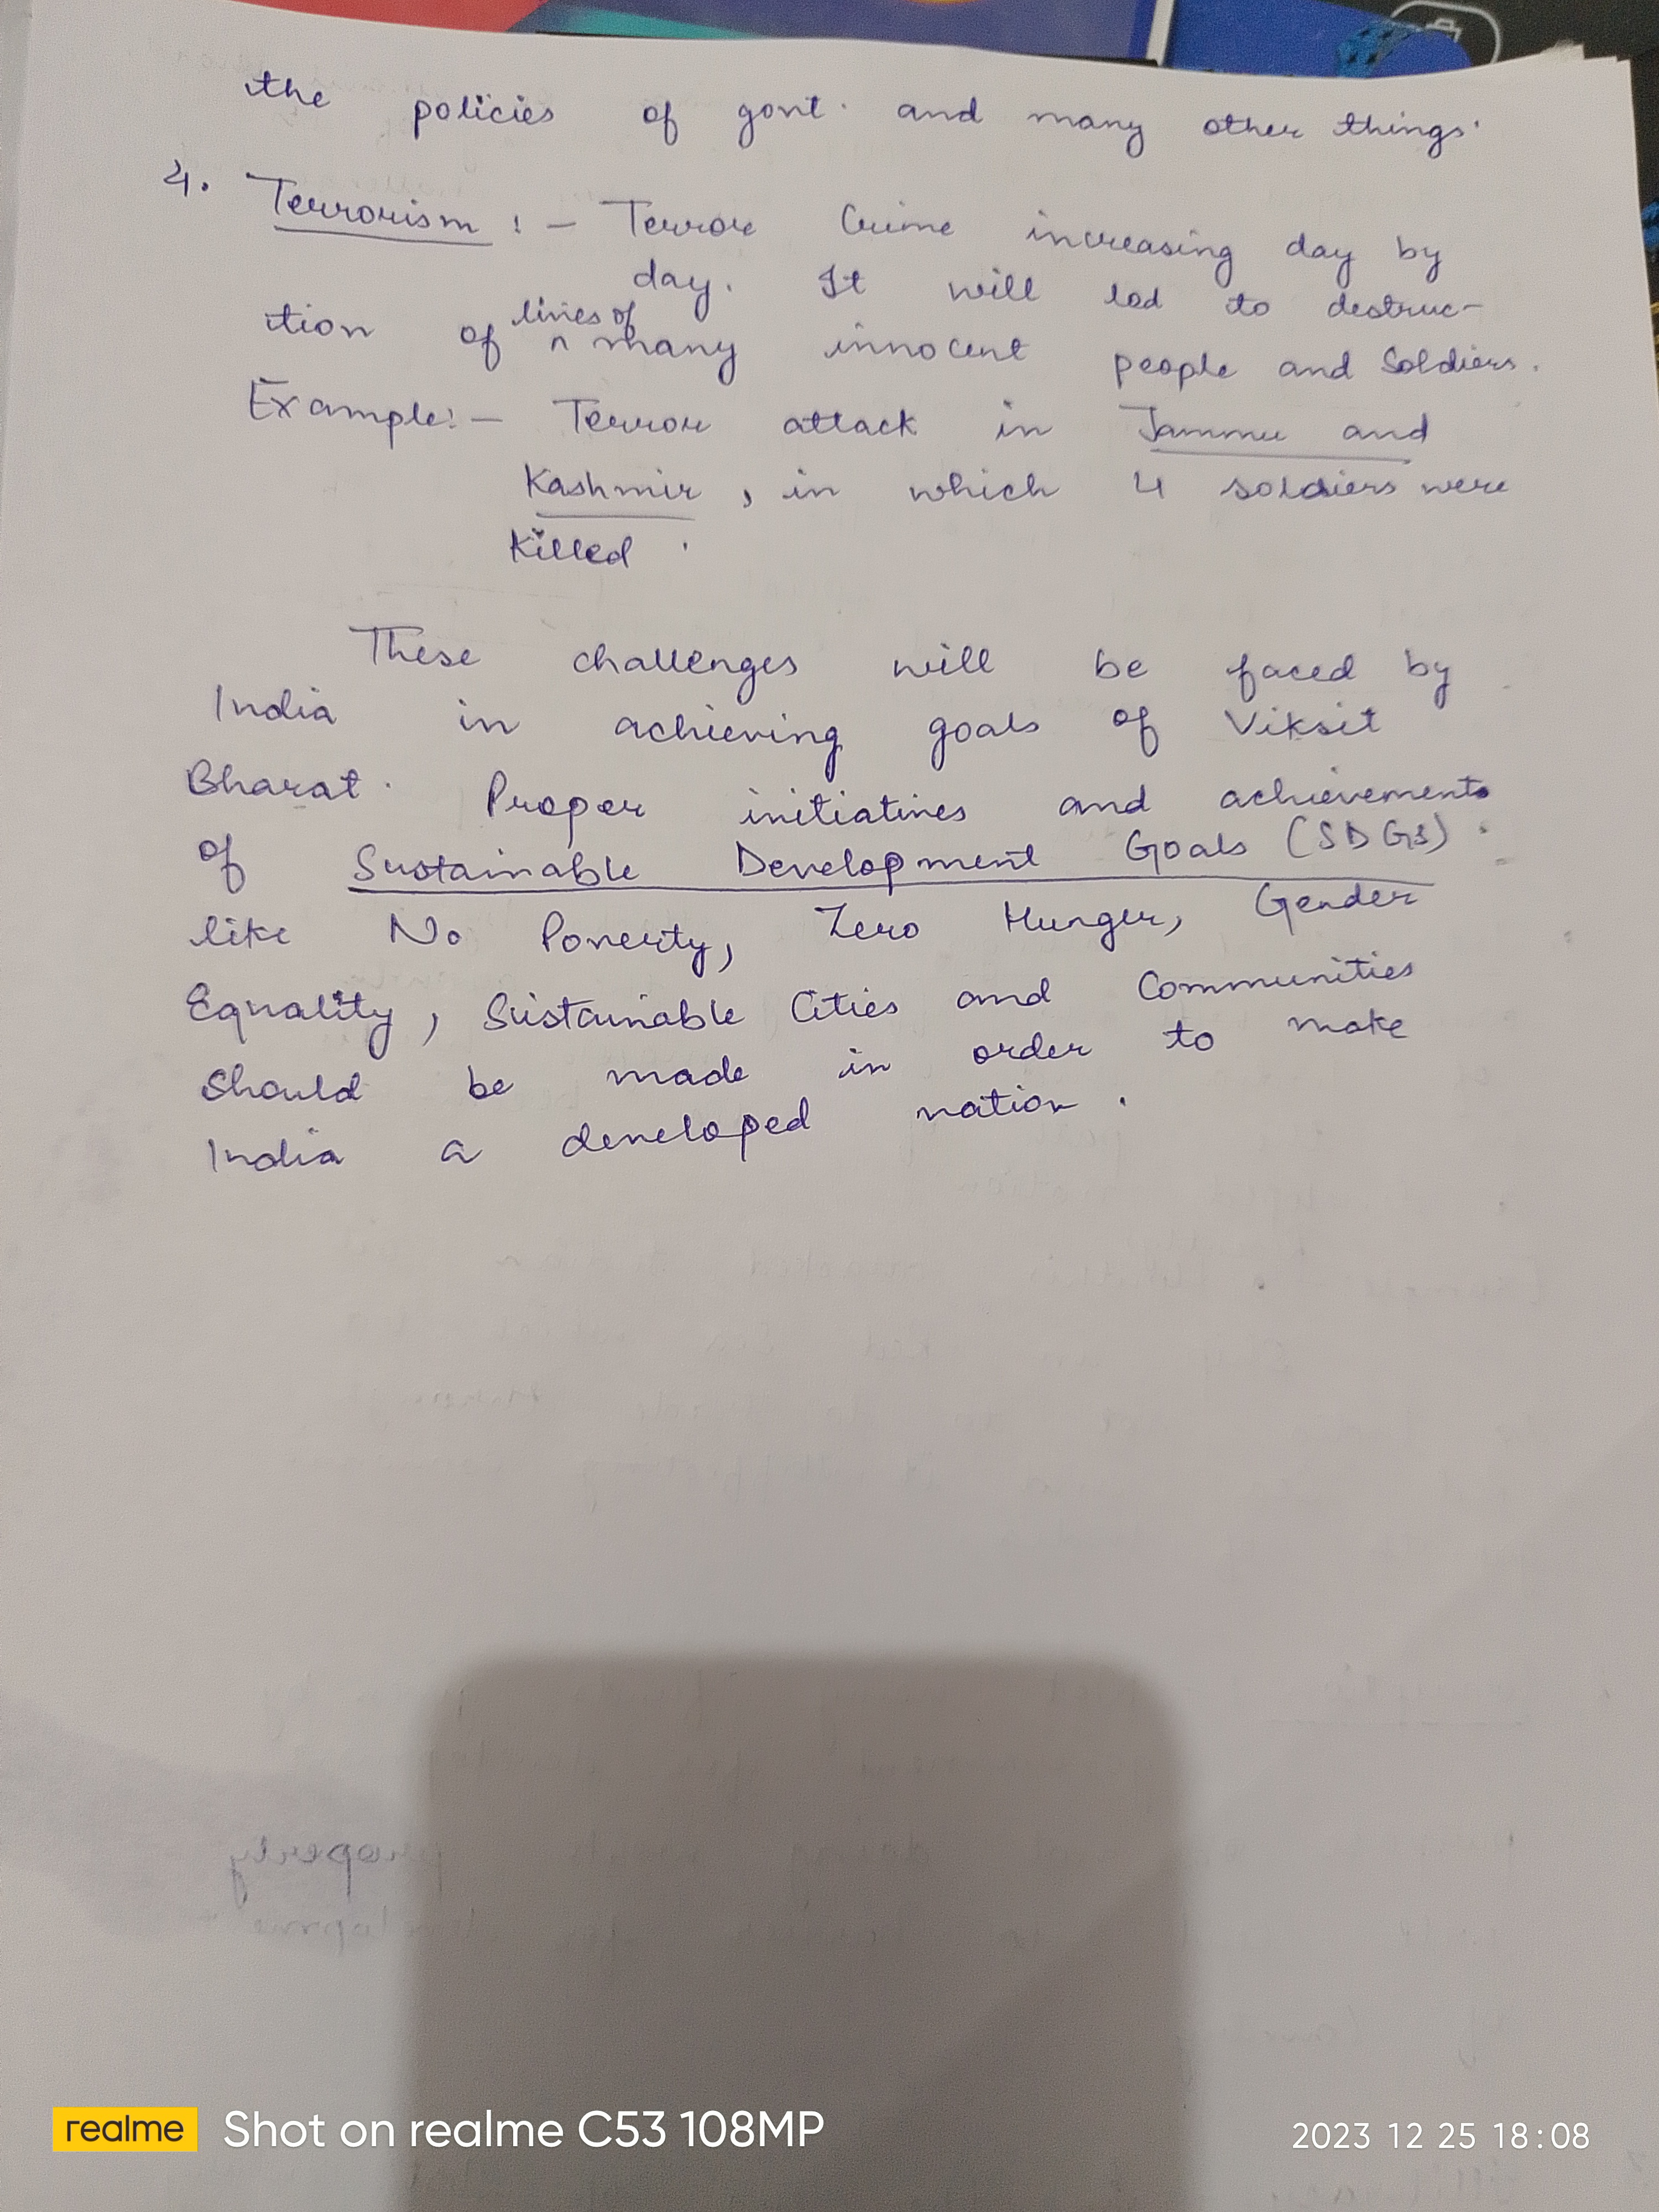 the policies of govt. and many other things.
4. Terrorism :- Terror Crime increasing day by
day. It will led to destruc-
tion of lives of many innocent people and Soldiers.
Example:- Terror attack in Jammu and
Kashmir, in which 4 soldiers were
Killed.
These challenges will be faced by
India in achieving goals of Viksit
Bharat. Proper initiatives and achievements
of Sustainable Development Goals (SDGs)
like No Poverty, Zero Hunger, Gender
Equality, Sustainable Cities and Communities
should be made in order to make
India a developed nation.
realme Shot on realme C53 108MP
2023 12 25 18:08